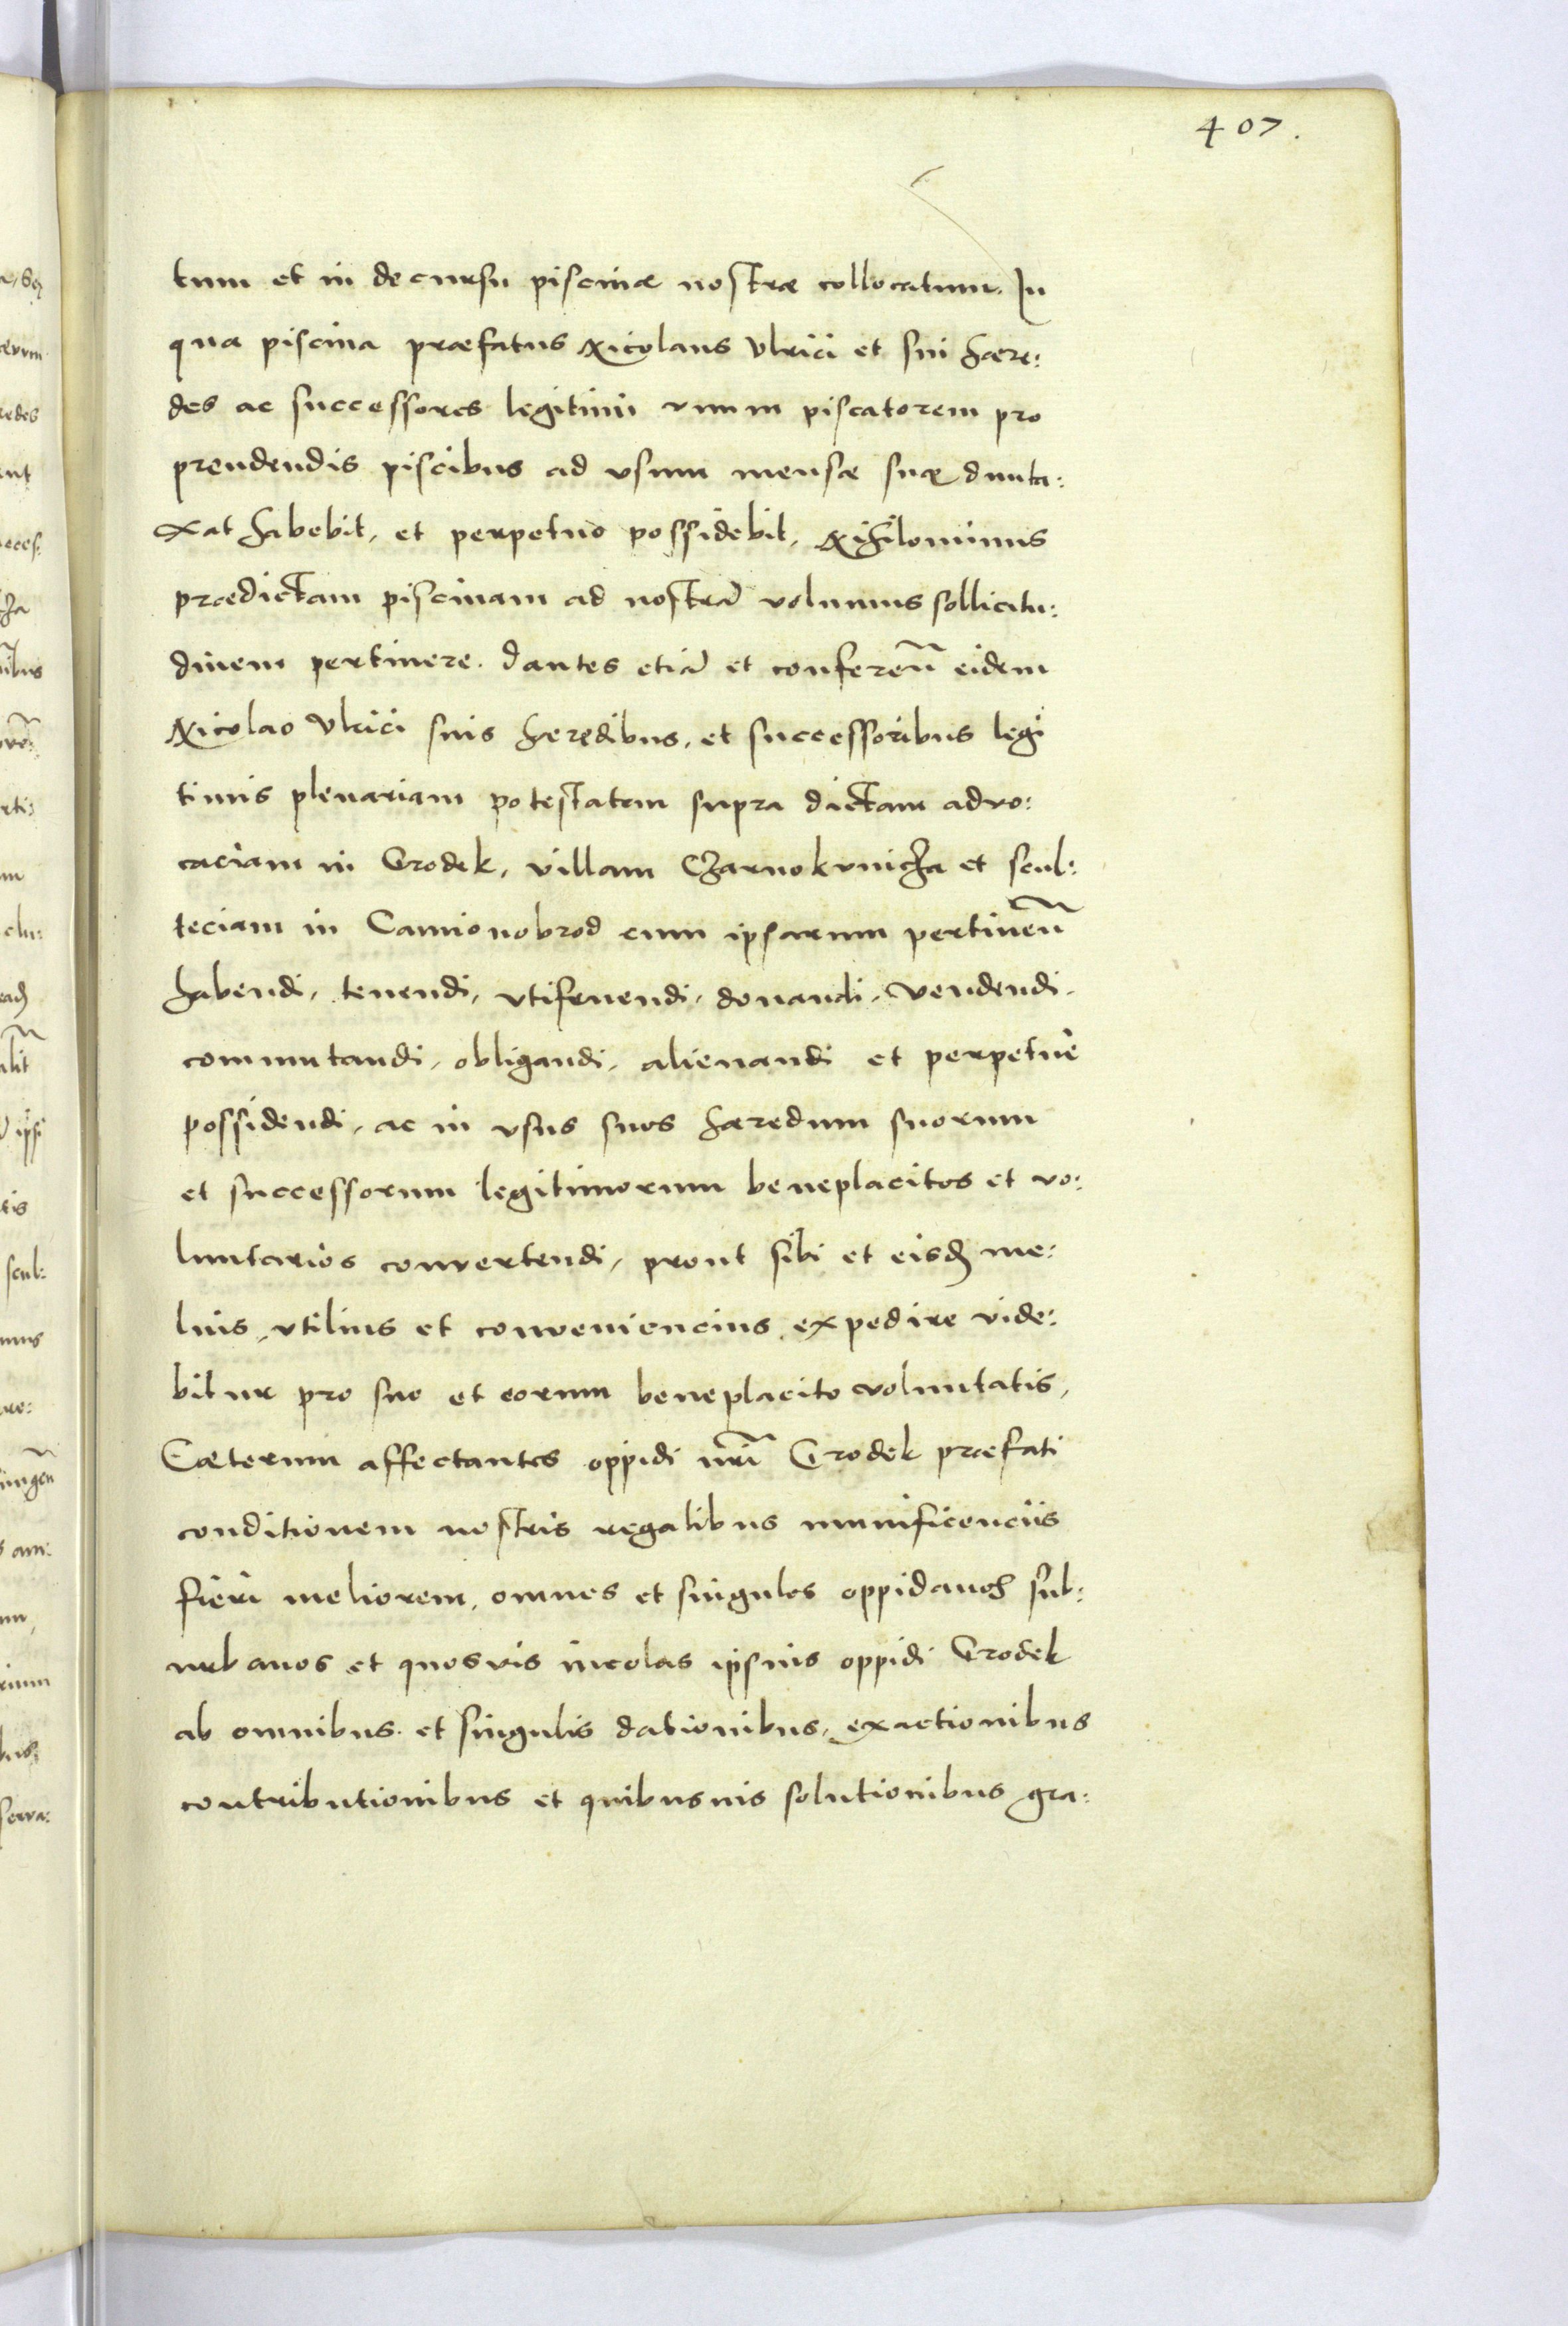 407.
tum et in decursu piscinæ nostræ collocatum. In
qua piscina præfatus Nicolaus Vlrici et sui hære:
des ac successores legitimi vnum piscatorem pro
prendendis piscibus ad vsum mensæ suæ dunta:
xat habebit, et perpetuo possidebit, Nihilominus
prædictam piscinam ad nostrã volumus sollicitu:
dinem pertinere. dantes etiã et conferen̄ eidem
Nicolao Vlrici suis hæredibus, et successoribus legi
timis plenariam potestatem supra dictam advo:
caciam in Grodek, villam Czarnokunicza et scul:
teciam in Camionobrod cum ipsarum pertinen̄
habendi, tenendi, vtifruendi, donandi, vendendi,
commutandi, obligandi, alienandi et perpetue
possidendi, ac in vsus suos hæredum suorum
et successorum legitimorum beneplacitos et vo:
luntarios convertendi, prout sibi et eisd̃ me:
lius, vtilius et conveniencius expedire vide:
bitur pro suo et eorum beneplacito voluntatis,
Cæterum affectantes oppidi nr̃i Grodek præfati
conditionem nostris regalibus munificenciis
fieri meliorem, omnes et singulos oppidanos sub:
urbanos et quosvis incolas ipsius oppidi Grodek
ab omnibus et singulis dationibus, exactionibus
contributionibus et quibusuis solutionibus gra: